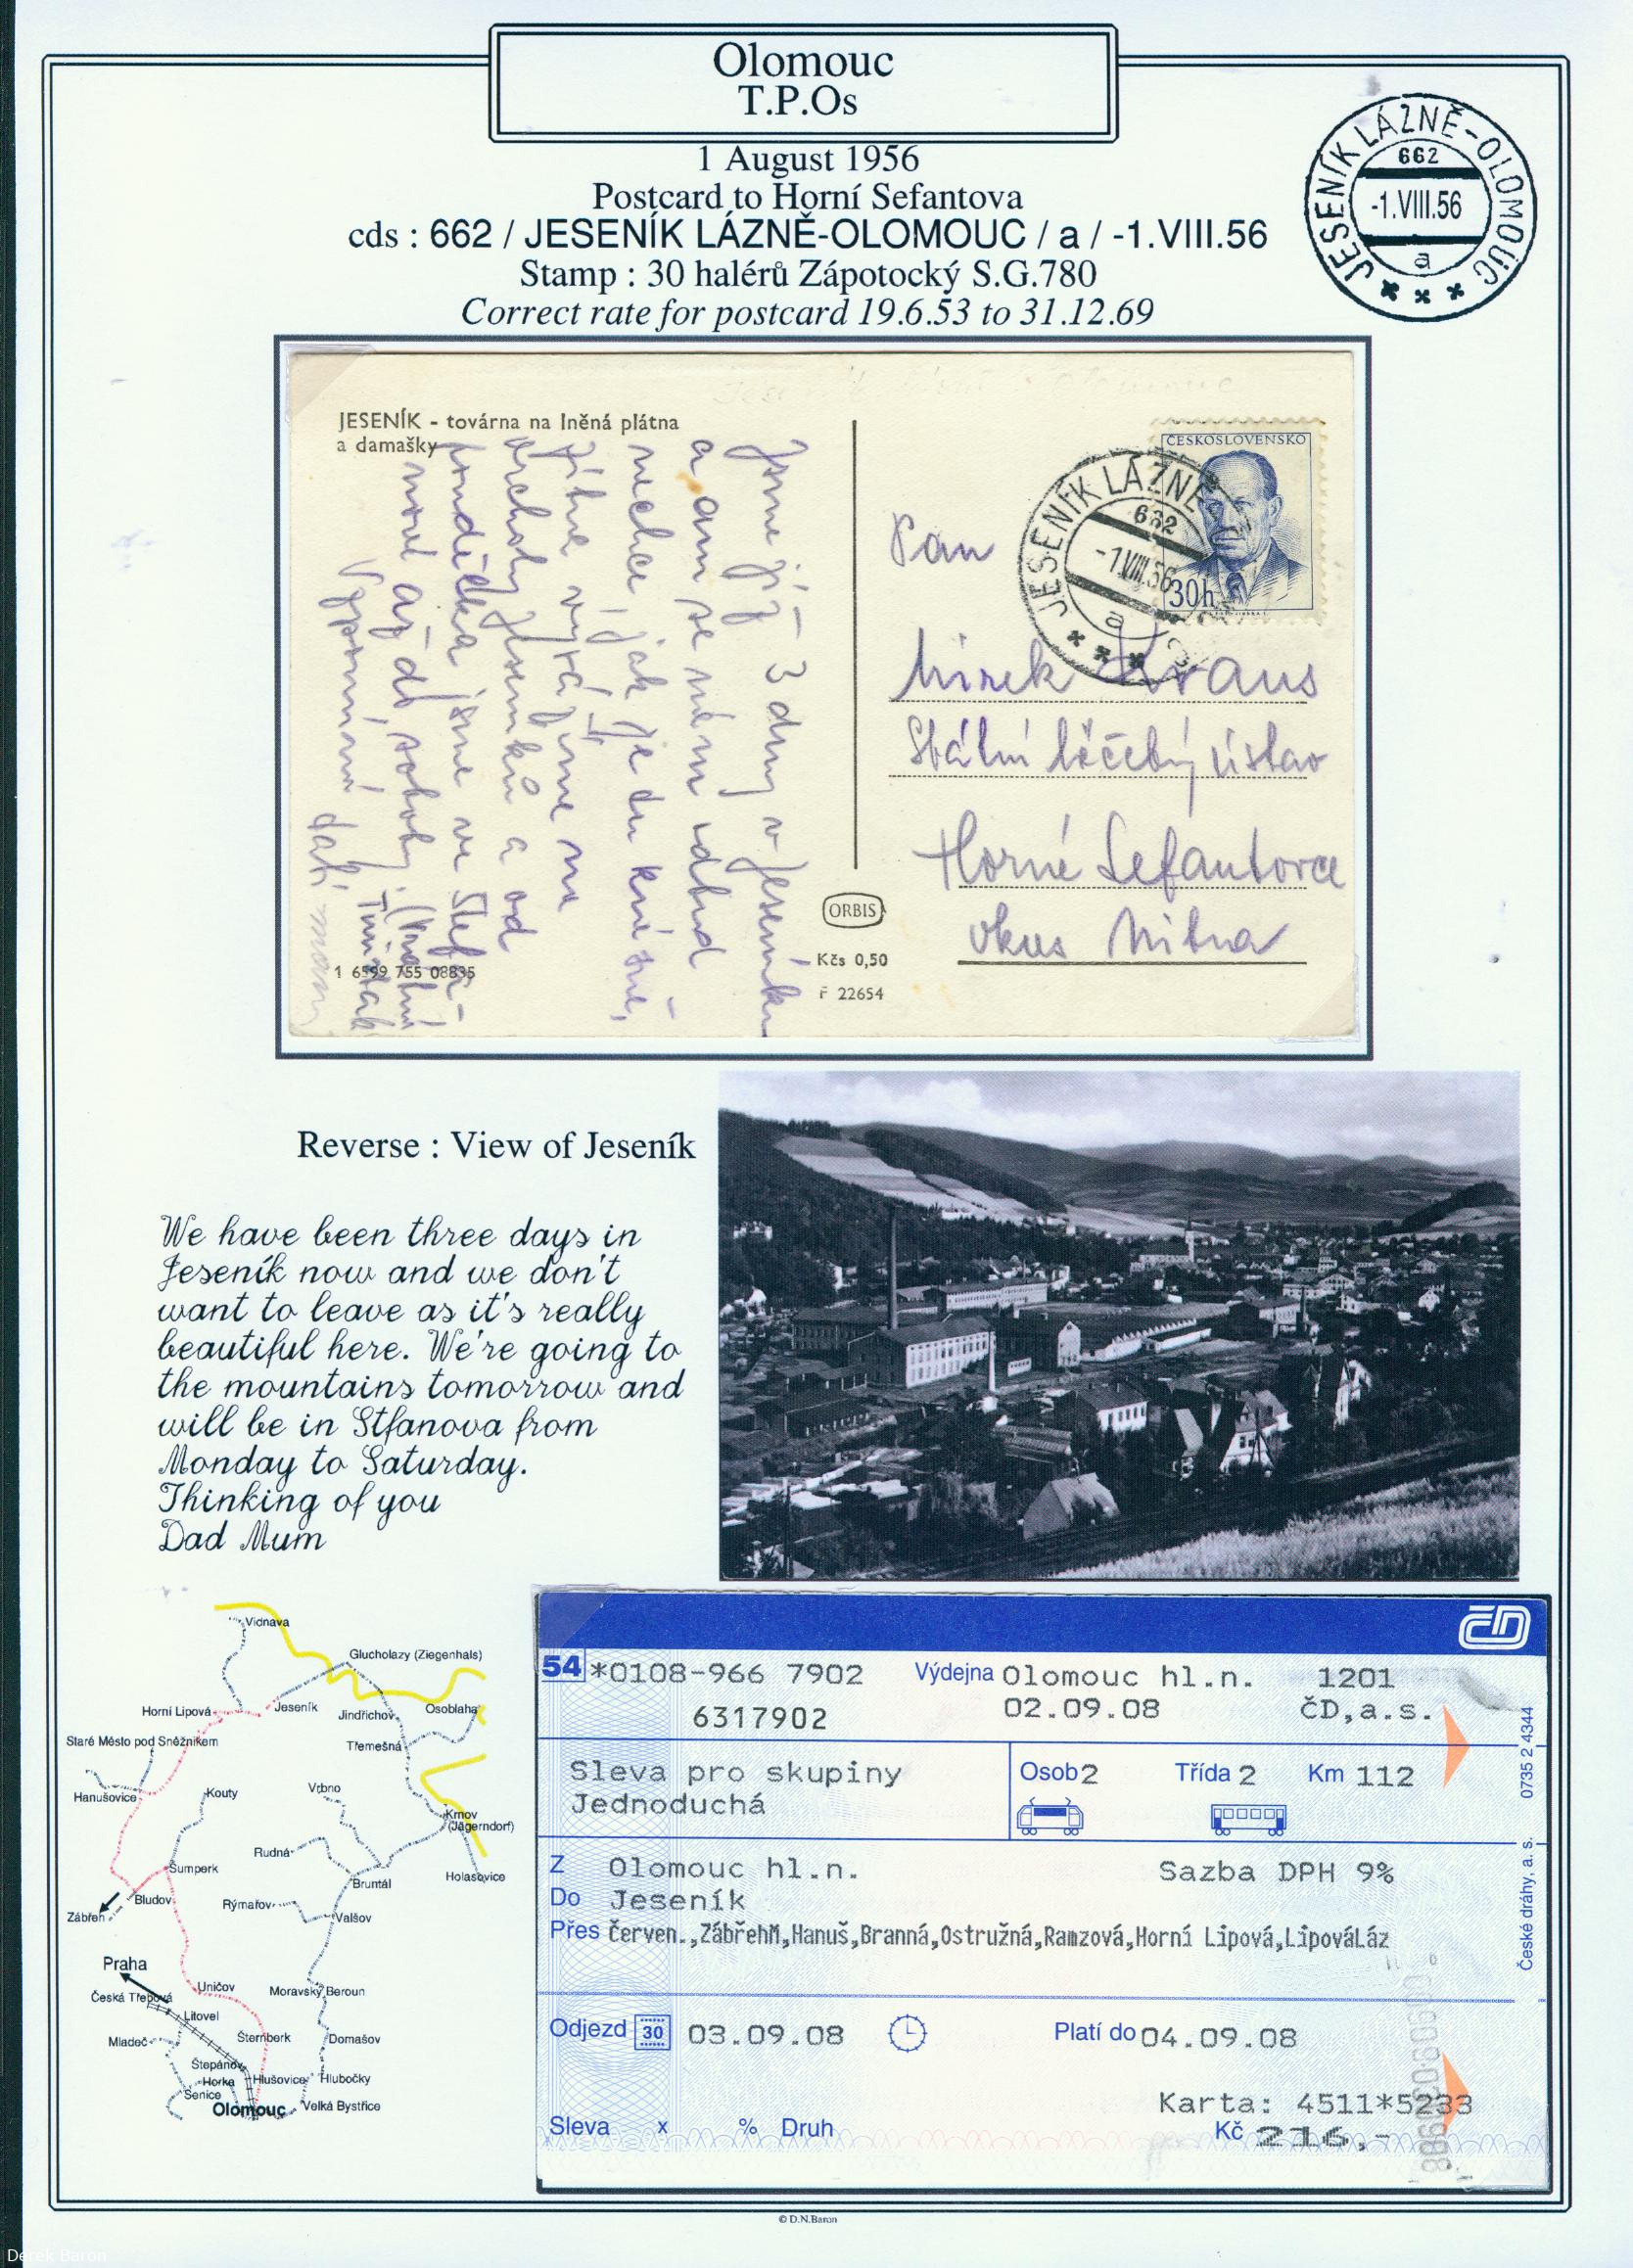 Olomouc
T.P.Os
1 August 1956
Postcard to Horní Sefantova
cds : 662 / JESENÍK LÁZNĚ-OLOMOUC / a / -1.VIII.56
Stamp : 30 halérů Zápotocký S.G.780
Correct rate for postcard 19.6.53 to 31.12.69
JESENÍK LÁZNĚ-OLOMOUC
662
-1.VIII.56
a
JESENÍK - továrna na lněná plátna
a damašky
Jsme již 3 dny v Jeseníku
a am se nám odtud
nechce, jak je tu krásně,
Zítra vyrážíme na
vrcholy Jeseníků a od
pondělka jsme ve Štefa-
nové až do soboty.
Vzpomínají
ČESKOSLOVENSKO
30h
JESENÍK LÁZNĚ
662
-1.VIII.56
a
Pan
Mirek Kraus
Státní léčebný ústav
Horné Sefantovce
okres Nitra
ORBIS
Kčs 0,50
F 22654
1 6599 755 08835
Reverse : View of Jeseník
We have been three days in
Jeseník now and we don't
want to leave as it's really
beautiful here. We're going to
the mountains tomorrow and
will be in Stfanova from
Monday to Saturday.
Thinking of you
Dad Mum
Vidnava
Glucholazy (Ziegenhals)
Horní Lipová
Jeseník
Jindřichov
Osoblaha
Staré Město pod Sněžníkem
Třemešná
Hanušovice
Kouty
Vrbno
Krnov
(Jägerndorf)
Rudná
Šumperk
Bruntál
Holasovice
Bludov
Zábřeh
Rýmařov
Valšov
Praha
Uničov
Moravský Beroun
Česká Třebová
Litovel
Mladeč
Šternberk
Domašov
Štepánov
Horka
Hlušovice
Hlubočky
Senice
Olomouc
Velká Bystřice
ČD
54 *0108-966 7902 Výdejna Olomouc hl.n. 1201
6317902 02.09.08 ČD,a.s.
Sleva pro skupiny Osob 2 Třída 2 Km 112
Jednoduchá
Z Olomouc hl.n. Sazba DPH 9%
Do Jeseník
Přes Červen.,ZábřehM,Hanuš,Branná,Ostružná,Ramzová,Horní Lipová,LipováLáz
Odjezd 30 03.09.08 Platí do 04.09.08
Karta: 4511*5233
Sleva x % Druh Kč 216,-
České dráhy, a. s. 0735 2 4344
© D.N.Baron
Derek Baron